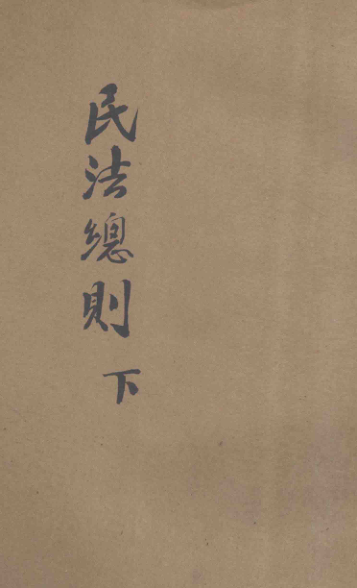 民法總則下